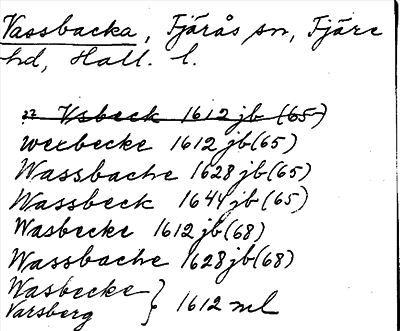 Vassbacka, Fjärås sn, Fjäre
hd, Hall. l.
Vsbeck 1612 jb (65)
wexbecke 1612 jb (65)
Wassbache 1628 jb (65)
Wassbeck 1644 jb (65)
Wasbecke 1612 jb (68)
Wassbache 1628 jb (68)
Wasbecke } 1612 ml
Varsberg